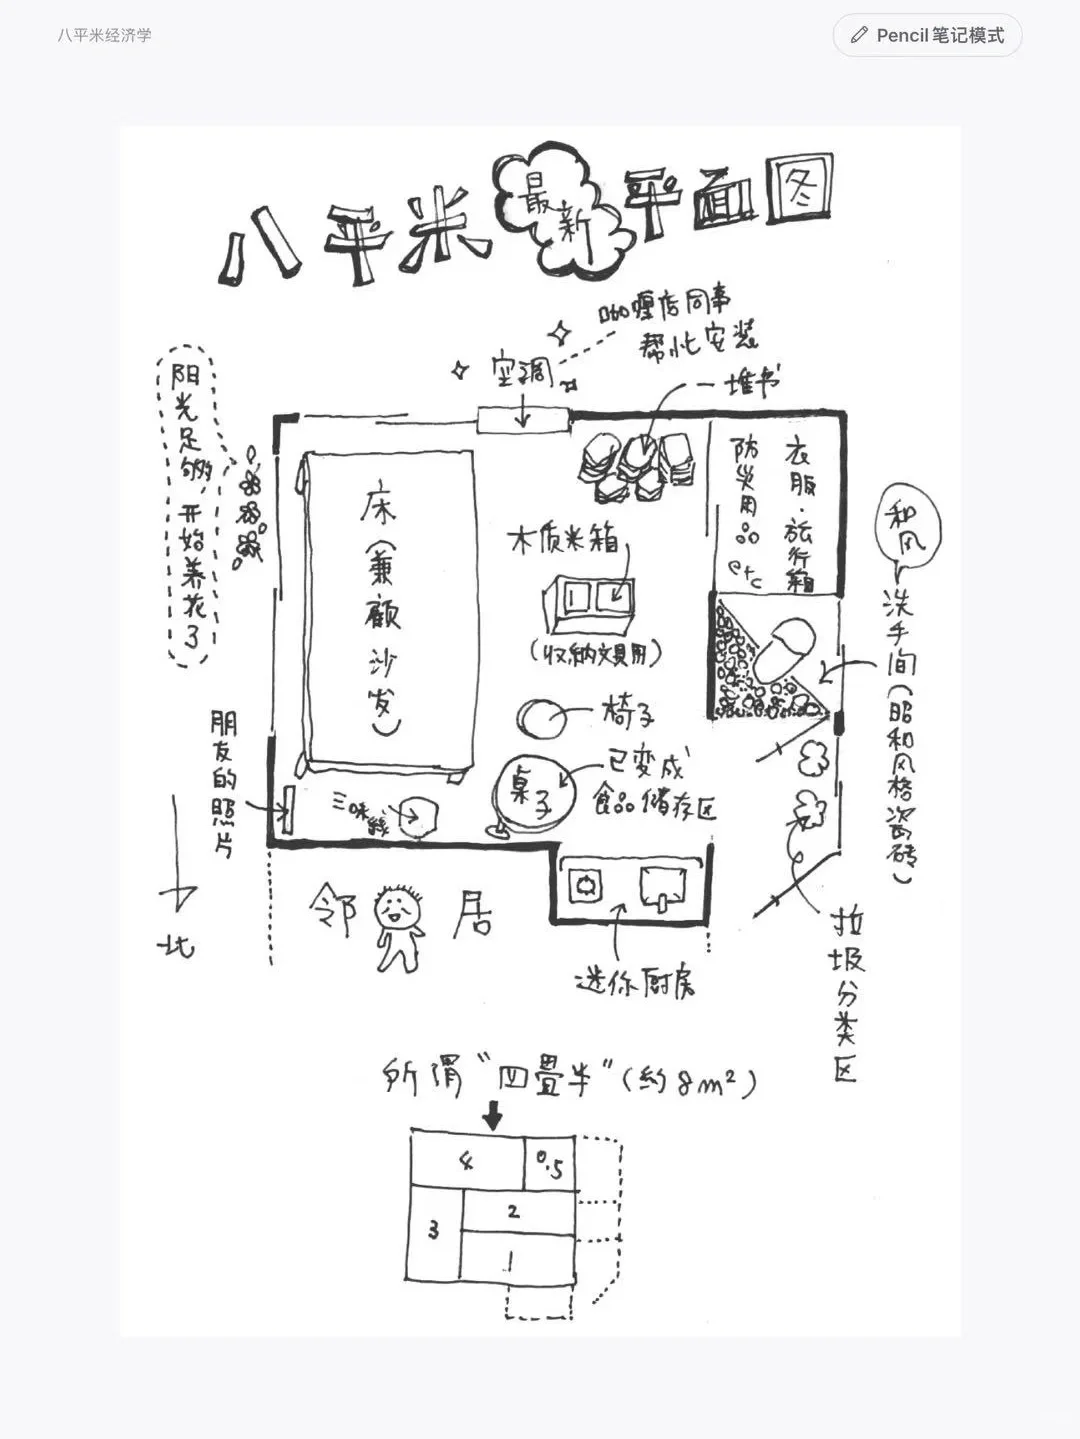 八平米经济学
Pencil 笔记模式
八平米最新平面图
咖喱店同事
帮忙安装
空调
一堆书
阳光足够，开始养花了
床（兼顾沙发）
防灾用品 etc
衣服·旅行箱
和风
洗手间（昭和风格瓷砖）
木质米箱
（收纳文具用）
椅子
桌子
已变成
食品储存区
朋友的照片
三味线
北
邻居
迷你厨房
垃圾分类区
所谓“四畳半”（约8m²）
4
0.5
3
2
1